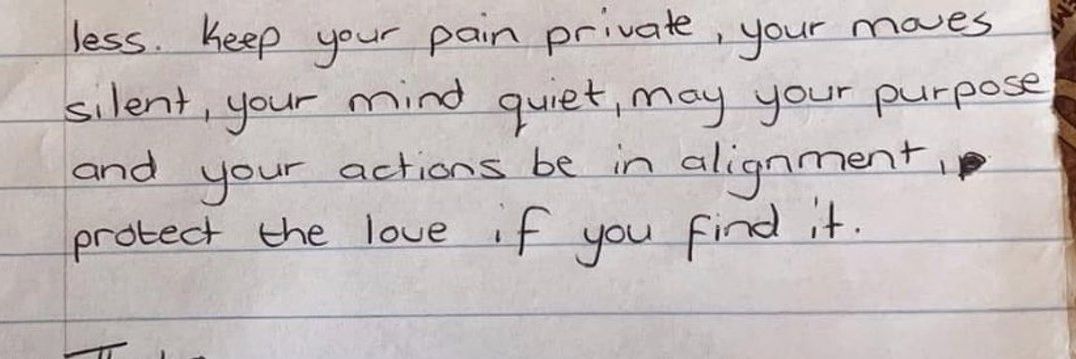 less. Keep your pain private, your moves
silent, your mind quiet, may your purpose
and your actions be in alignment,
protect the love if you find it.